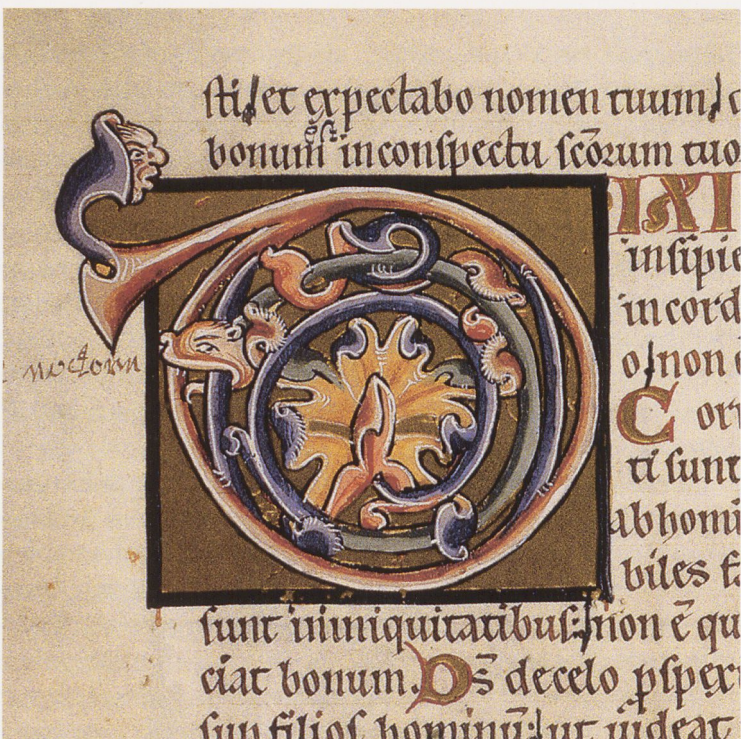 sti, et expectabo nomen tuum,
bonum ẽst in conspectu scõrum tuo
DIXI
insipie
in cord
o, non
noctorn
Corr
ti sunt
abhomi
biles fa
sunt in iniquitatibus: non ẽ qu
ciat bonum. Ds̃ de celo pspex
sup filios hominũ: ut uideat